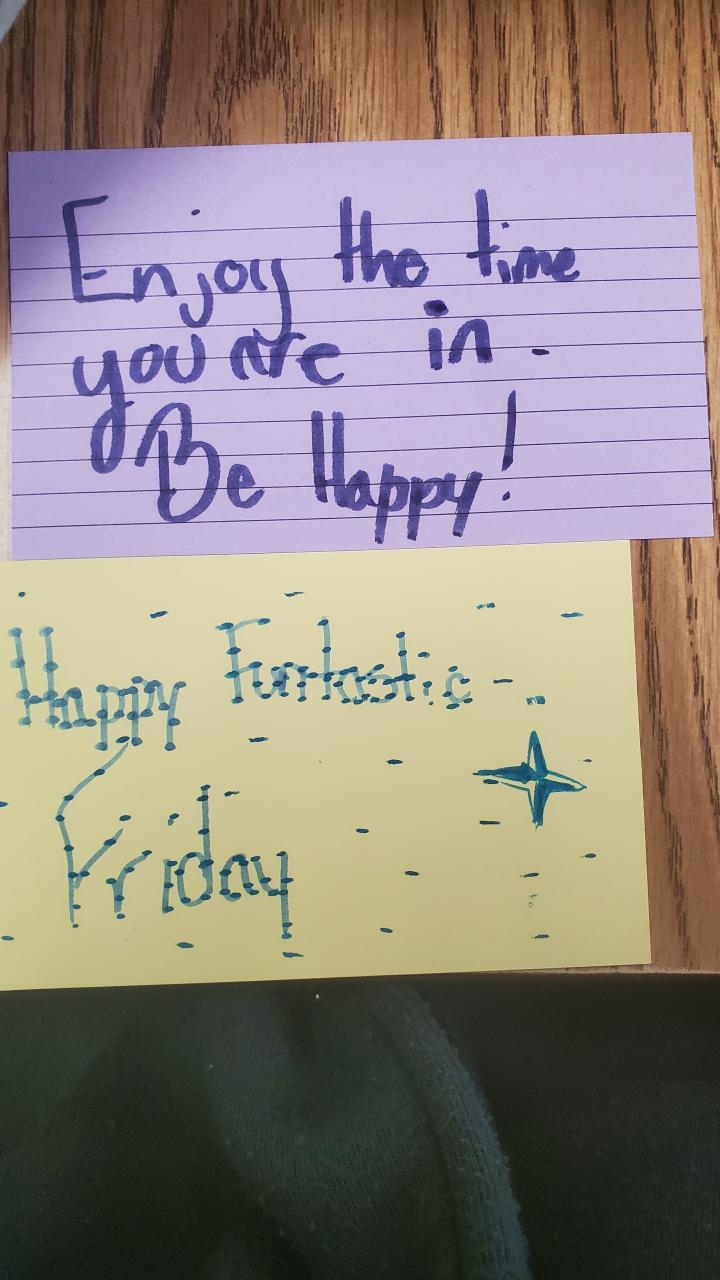 Enjoy the time
you are in.
Be Happy!
Happy Funtastic -
Friday